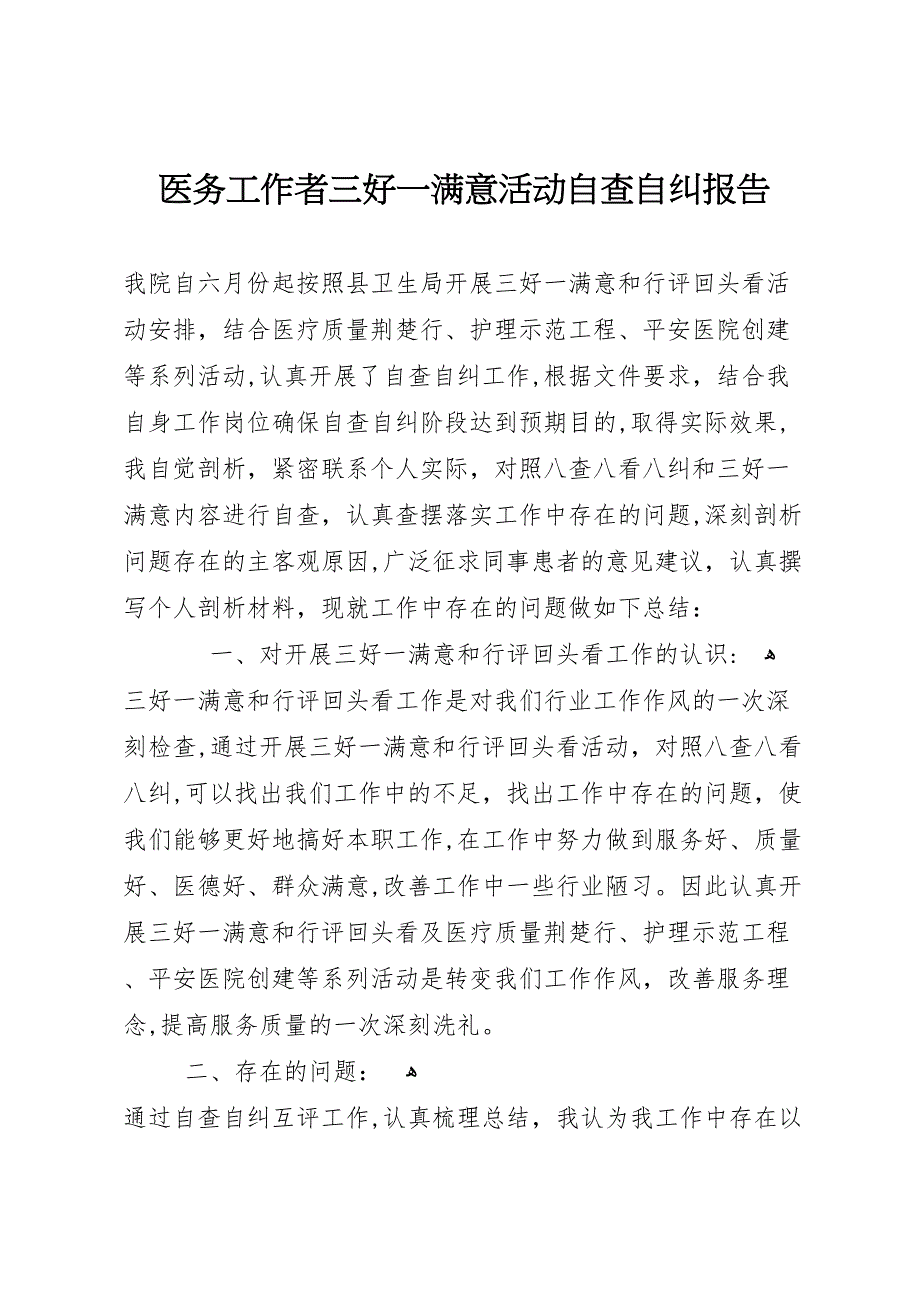 医务工作者三好一满意活动自查自纠报告
我院自六月份起按照县卫生局开展三好一满意和行评回头看活
动安排，结合医疗质量荆楚行、护理示范工程、平安医院创建
等系列活动,认真开展了自查自纠工作,根据文件要求，结合我
自身工作岗位确保自查自纠阶段达到预期目的,取得实际效果,
我自觉剖析，紧密联系个人实际，对照八查八看八纠和三好一
满意内容进行自查，认真查摆落实工作中存在的问题,深刻剖析
问题存在的主客观原因,广泛征求同事患者的意见建议，认真撰
写个人剖析材料，现就工作中存在的问题做如下总结：
一、对开展三好一满意和行评回头看工作的认识: ﻫ
三好一满意和行评回头看工作是对我们行业工作作风的一次深
刻检查,通过开展三好一满意和行评回头看活动，对照八查八看
八纠,可以找出我们工作中的不足，找出工作中存在的问题，使
我们能够更好地搞好本职工作,在工作中努力做到服务好、质量
好、医德好、群众满意,改善工作中一些行业陋习。因此认真开
展三好一满意和行评回头看及医疗质量荆楚行、护理示范工程
、平安医院创建等系列活动是转变我们工作作风，改善服务理
念,提高服务质量的一次深刻洗礼。
二、存在的问题： ﻫ
通过自查自纠互评工作,认真梳理总结，我认为我工作中存在以